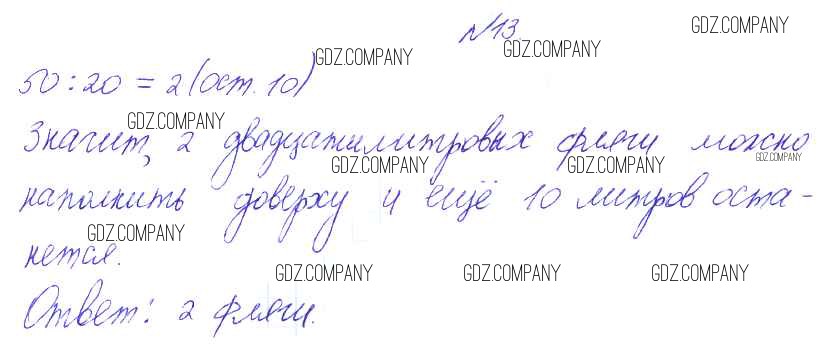 №13.
50:20 = 2 (ост. 10)
Значит, 2 двадцатилитровых фляги можно
наполнить доверху и ещё 10 литров оста-
нется.
Ответ: 2 фляги.
GDZ.COMPANY
GDZ.COMPANY
GDZ.COMPANY
GDZ.COMPANY
GDZ.COMPANY
GDZ.COMPANY
GDZ.COMPANY
GDZ.COMPANY
GDZ.COMPANY
GDZ.COMPANY
GDZ.COMPANY